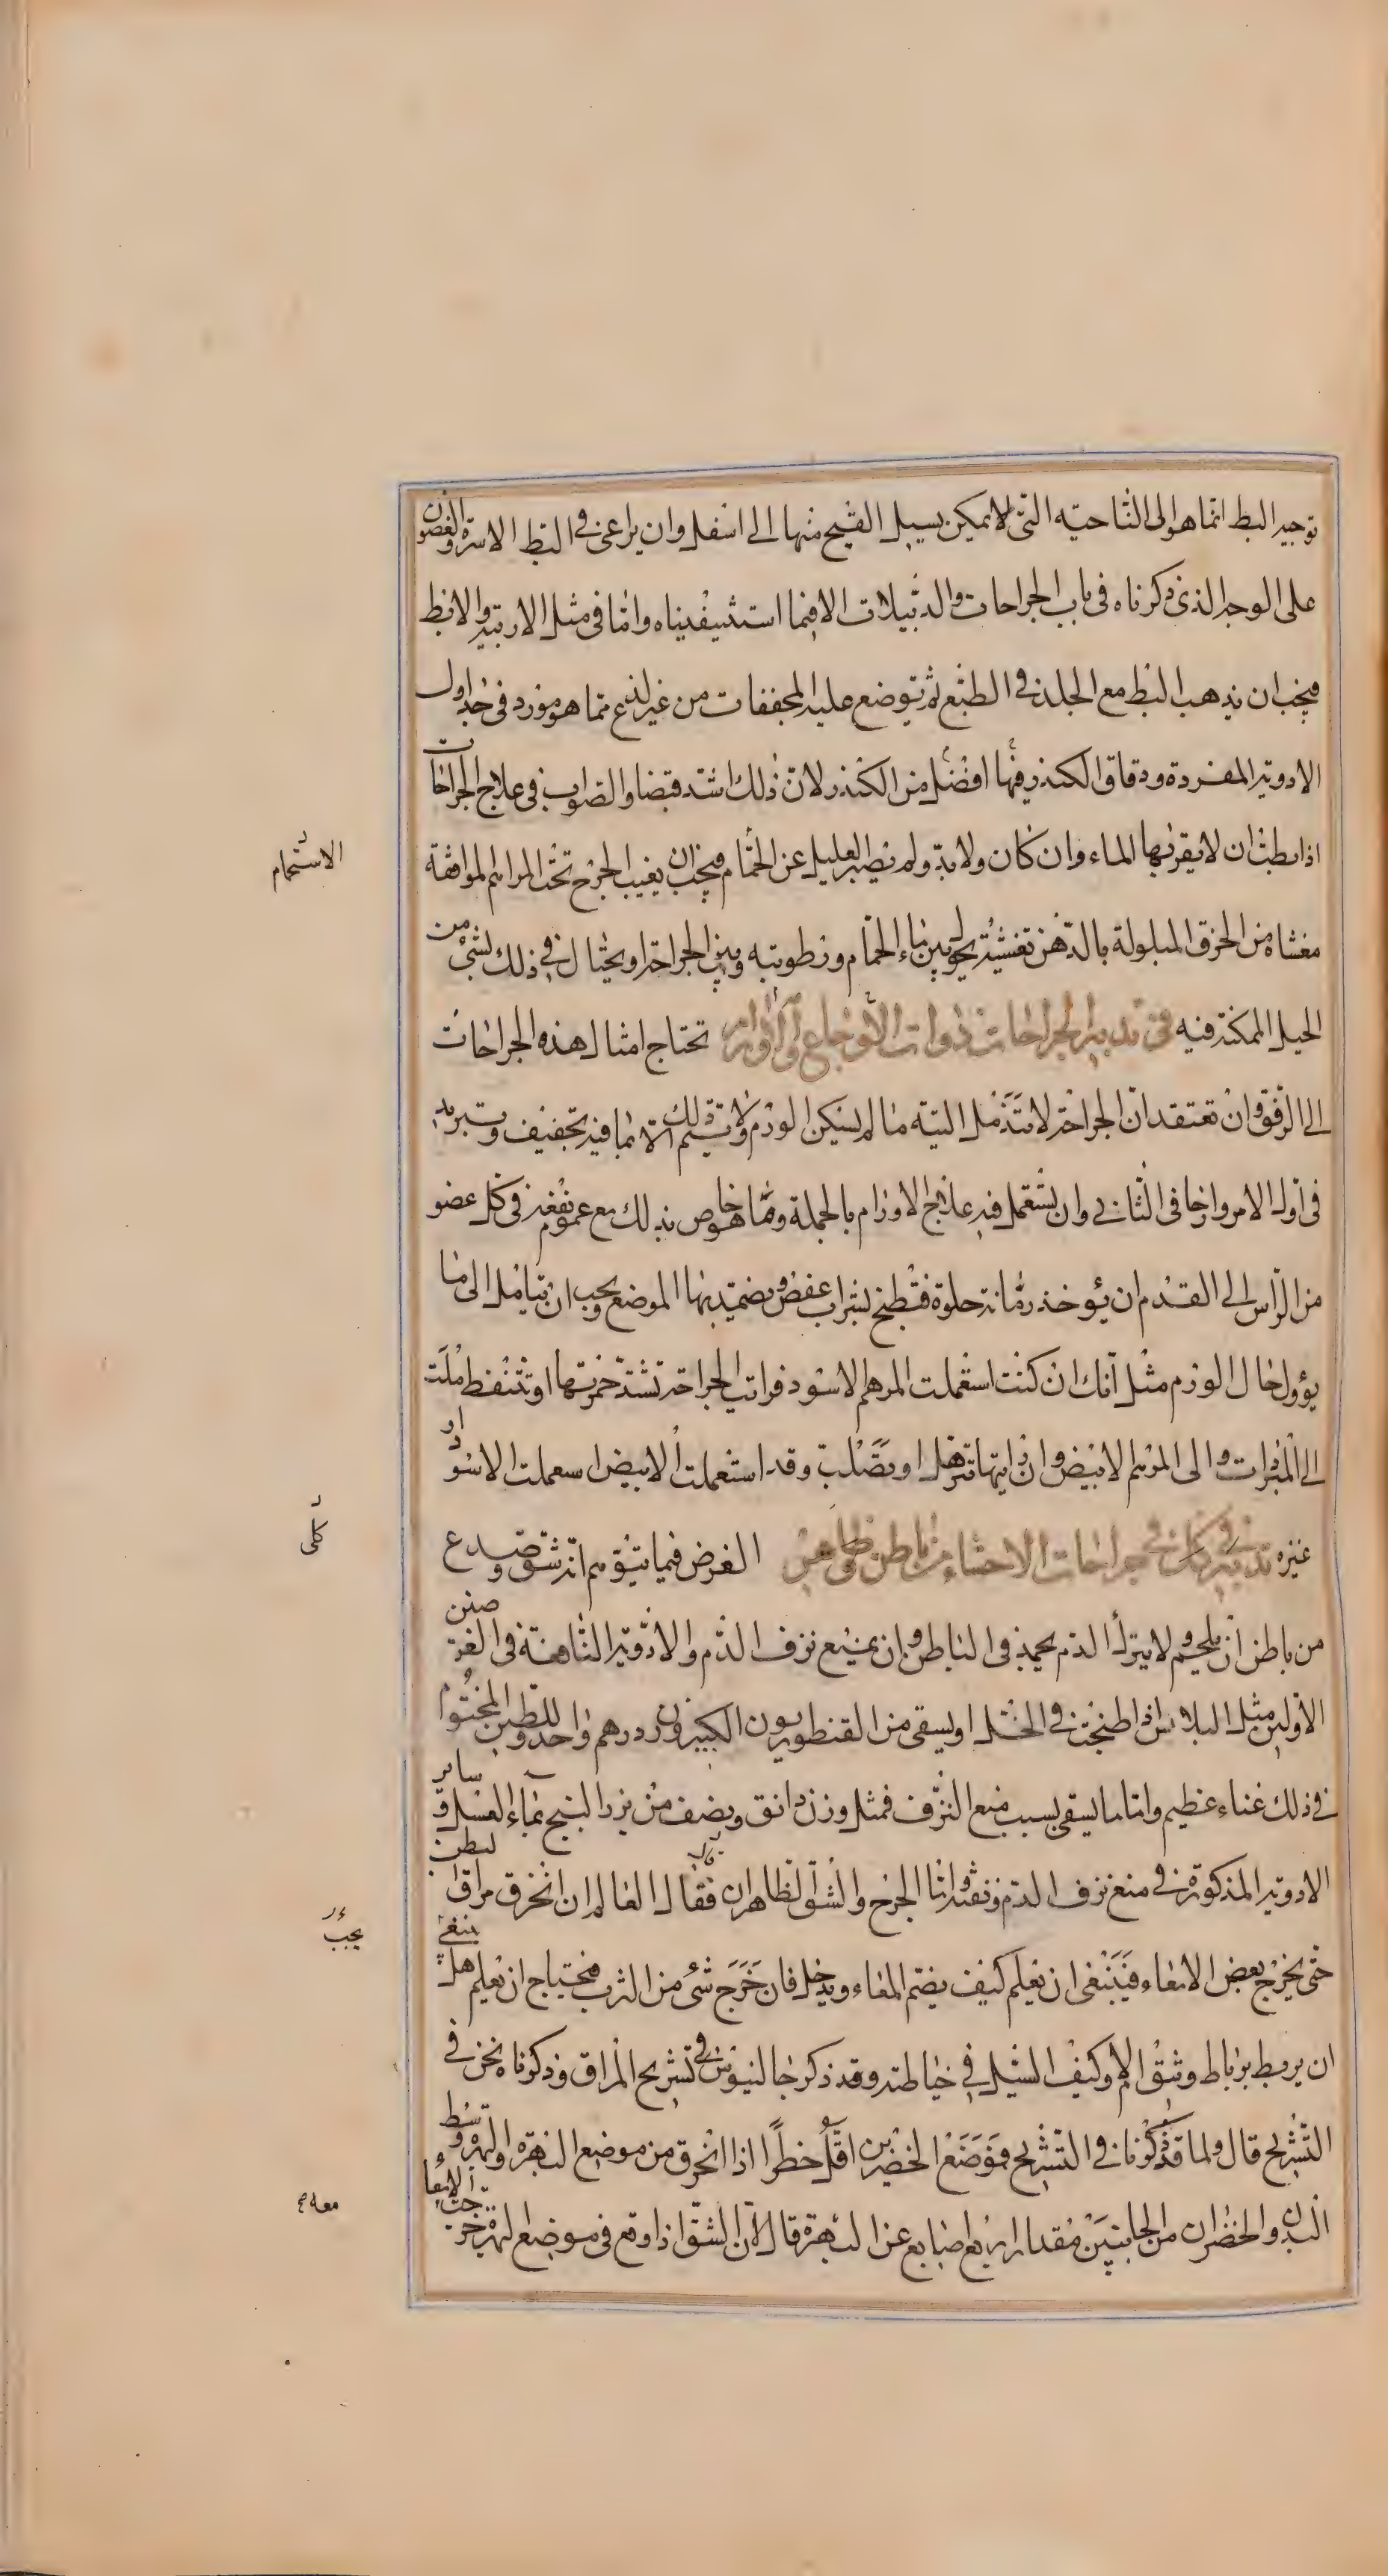 توجيه البط انما هو الى الناحيه التى لا يمكن بسيل القيح منها الى اسفل وان يراعى فى البط الاسرة والغضون
على الوجه الذى ذكرناه فى باب الجراحات والدبيلات الا فيما استثنيناه واما فى مثل الاربية والابط
فيجب ان يذهب البط مع الجلد فى الطبع ثم توضع عليه المجففات من غير لذع مما هو مورد فى جداول
الادوية المفردة ودقاق الكندر فيها افضل من الكندر لان ذلك اشد قبضا والصواب فى علاج الجراحات
اذا بطت ان لا يقربها الماء وان كان ولا بد ولم يصبر العليل عن الحمام فيجب ان يغيب الجرح تحت المراهم الموافقة
مغشاه من الخرق المبلولة بالدهن تغشية يحول بين ماء الحمام ورطوبته وبين الجراحة او يحتال فى ذلك بشىء من
الحيل الممكنة فيه فى تدبير الجراحات ذوات الاوجاع والاورام تحتاج امثال هذه الجراحات
الى الرفق وان تعتقد ان الجراحة لا تندمل البتة ما لم يسكن الورم ولا يتم ذلك الا بما فيه تجفيف وتبريد
فى اول الامر وارخا فى الثانى وان يستعمل فيه علاج الاورام بالجملة ومما هو خاص بذلك مع عموم نفعه فى كل عضو
من الراس الى القدم ان يؤخذ رمانة حلوة فتطبخ بشراب عفص ويضمد بها الموضع ويجب ان تتامل الى ما
يؤول حال الورم مثل انك ان كنت استعملت المرهم الاسود فرايت الجراحة تشتد حمرتها او تتنفط ملت
الى المبردات والى المرهم الابيض وان رايتها تترهل او تصلب وقد استعملت الابيض استعملت الاسود او
غيره تدبير كلى فى جراحات الاحشاء من باطن وظاهر الغرض فيما يتوهم انه شق وصدع
من باطن ان يلحم ولا يترك الدم يجمد فى الباطن وان يمنع نزف الدم والادوية النافعة فى الغرضين
الاولين مثل البلابس اذا طبخت فى الخل او يسقى من القنطوريون الكبير وزن درهم واحد وللطين المختوم
فى ذلك غناء عظيم واما ما يسقى بسبب منع النزف فمثل وزن دانق ونصف من بزر البنج بماء العسل وساير
الادوية المذكورة فى منع نزف الدم ونفثه واما الجرح والشق الظاهران فقال العالم ان انخرق مراق البطن
حتى يخرج بعض الامعاء فينبغى ان تعلم كيف يضم المعاء ويدخل فان خرج شىء من الثرب فيحتاج ان تعلم هل ينبغى
ان يربط برباط وثيق ام لا وكيف السبيل فى خياطته وقد ذكر جالينوس فى تشريح المراق وذكرناه نحن فى
التشريح قال ولما قد ذكرنا فى التشريح فموضع الخضرين اقل خطرا اذا انخرق من موضع البهرة والبهرة وسط
البدن والخضران من الجانبين مقدار اربع اصابع عن البهرة قال لان الشق اذا وقع فى موضع البهرة خرجت الامعا
الاستحمام
كلى
يجب
معه